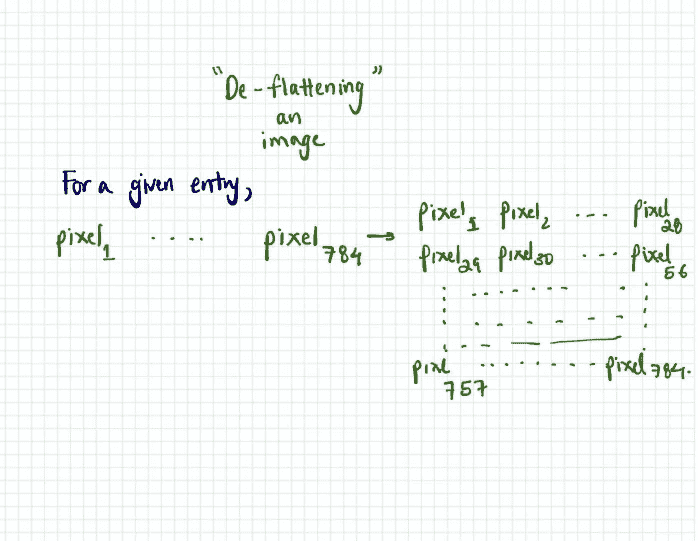 "De-flattening"
an
image
For a given entry,
pixel1 .... pixel784 → pixel1 pixel2 ... pixel28
pixel29 pixel30 ... pixel56
pixl757 ........ pixel784.